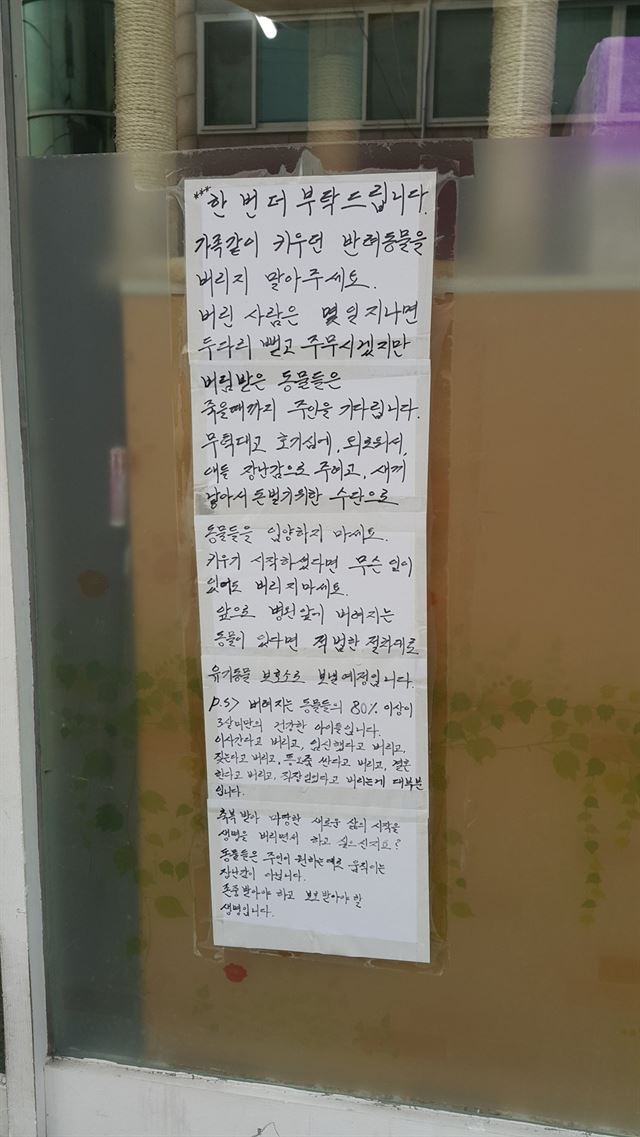 ***한 번 더 부탁드립니다.
가족같이 키우던 반려동물을
버리지 말아주세요.
버린 사람은 몇일지나면
두다리 뻗고 주무시겠지만
버림받은 동물들은
죽을때까지 주인을 기다립니다.
무턱대고 호기심에, 외로워서,
애들 장난감으로 주려고, 새끼
낳아서 돈벌기위한 수단으로
동물들을 입양하지 마세요.
키우기 시작하셨다면 무슨 일이
있어도 버리지마세요.
앞으로 병원앞에 버려지는
동물이 있다면 적법한 절차대로
유기동물 보호소로 보낼예정입니다.
P.S> 버려지는 동물들의 80% 이상이
3살미만의 건강한 아이들입니다.
이사간다고 버리고, 임신했다고 버리고,
짖는다고 버리고, 똥오줌 싼다고 버리고, 결혼
한다고 버리고, 직장 다닌다고 버리는게 대부분
입니다.
축복 받아 마땅한 새로운 삶의 시작을
생명을 버리면서 하고 싶으신지요?
동물들은 주인이 원하는대로 움직이는
장난감이 아닙니다.
존중받아야 하고 보호받아야 할
생명입니다.